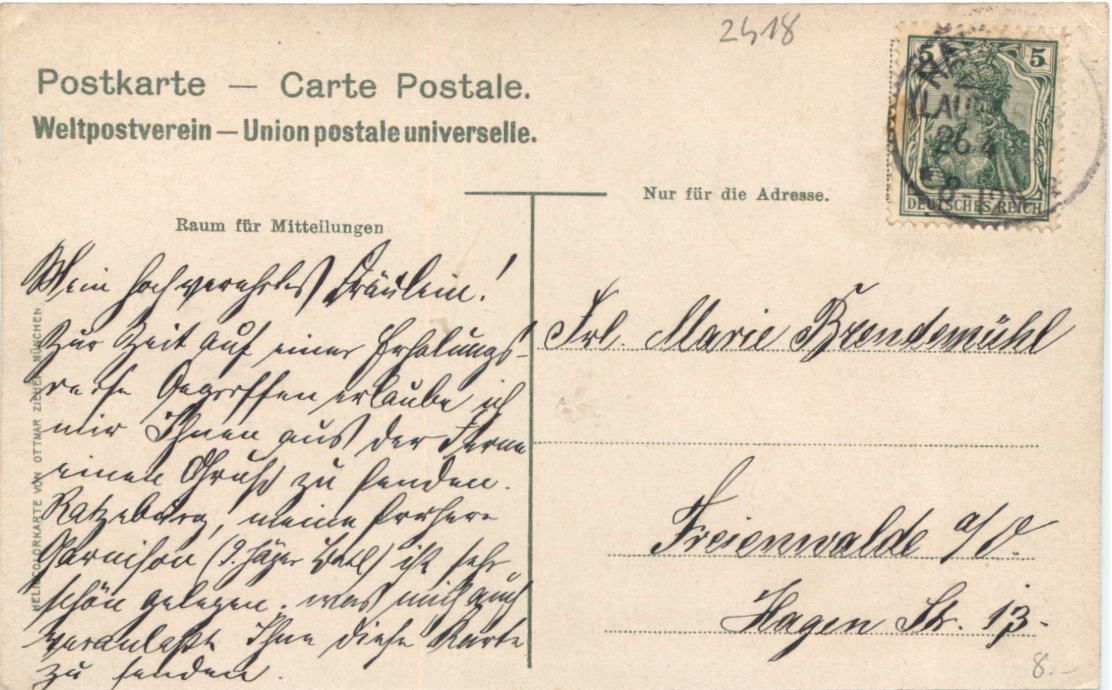 2418
Postkarte — Carte Postale.
Weltpostverein — Union postale universelle.
5 5
LAUE
26.4
8-12
DEUTSCHES REICH
Nur für die Adresse.
Raum für Mitteilungen
Mein hochverehrtes Fräulein!
Zur Zeit auf einer Erholungs-
reise begriffen erlaube ich
mir Ihnen aus der Ferne
einen Gruß zu senden.
Ratzeburg, meine frühere
Garnison (9. Jäger Batl) ist sehr
schön gelegen, was mich auch
veranlaßt Ihnen diese Karte
zu senden.
Frl. Marie Brendemühl
Freienwalde a/O.
Hagen Str. 13.
HELIOCOLORKARTE VON OTTMAR ZIEHER MÜNCHEN
8.–